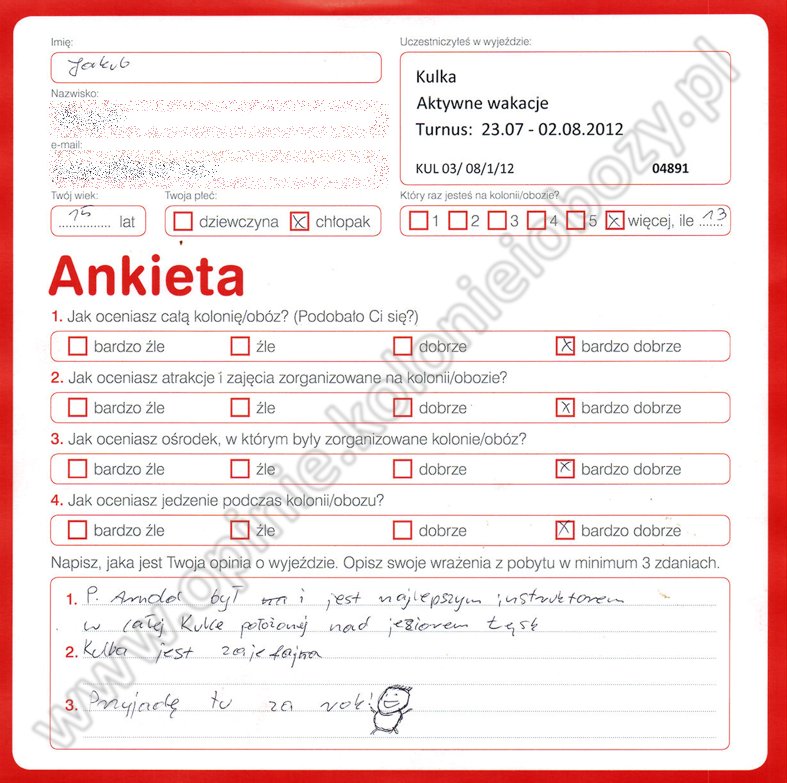 Imię:
Jakub
Uczestniczyłeś w wyjeździe:
Kulka
Aktywne wakacje
Turnus: 23.07 - 02.08.2012
KUL 03/ 08/1/12 04891
Nazwisko:
e-mail:
Twój wiek:
15 lat
Twoja płeć:
dziewczyna chłopak
Który raz jesteś na kolonii/obozie?
1 2 3 4 5 więcej, ile 13
Ankieta
1. Jak oceniasz całą kolonię/obóz? (Podobało Ci się?)
bardzo źle źle dobrze bardzo dobrze
2. Jak oceniasz atrakcje i zajęcia zorganizowane na kolonii/obozie?
bardzo źle źle dobrze bardzo dobrze
3. Jak oceniasz ośrodek, w którym były zorganizowane kolonie/obóz?
bardzo źle źle dobrze bardzo dobrze
4. Jak oceniasz jedzenie podczas kolonii/obozu?
bardzo źle źle dobrze bardzo dobrze
Napisz, jaka jest Twoja opinia o wyjeździe. Opisz swoje wrażenia z pobytu w minimum 3 zdaniach.
1. P. Arnold był i jest najlepszym instruktorem
w całej Kulce położonej nad jeziorem Łęsk
2. Kulka jest zajefajna
3. Przyjadę tu za rok!
www.opinie.kolonieiobozy.pl